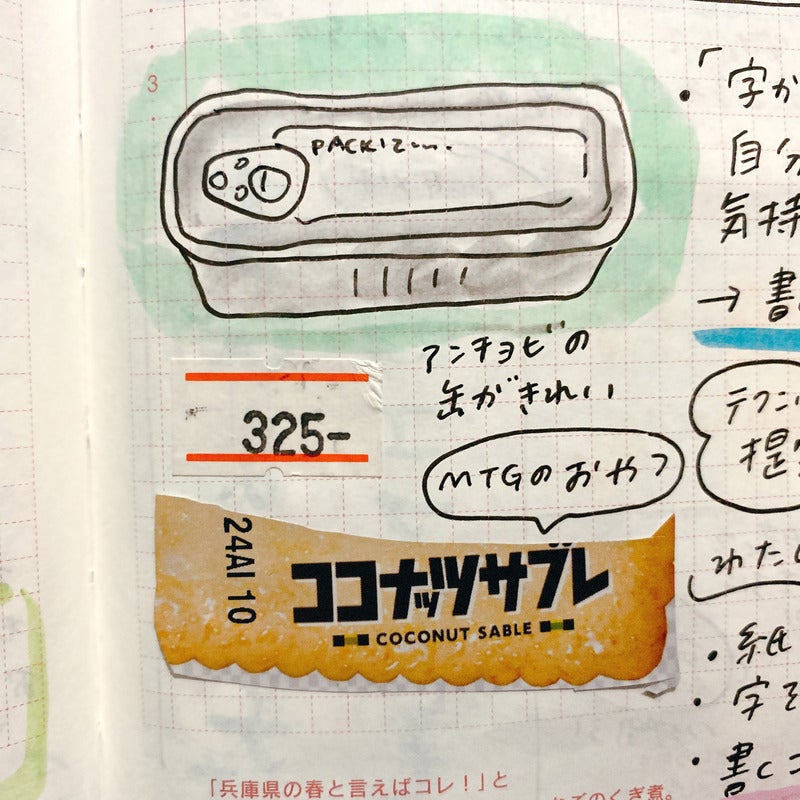 3
PACKIZ....
アンチョビの
缶がきれい
325-
MTGのおやつ
24AI 10
ココナッツサブレ
COCONUT SABLE
「兵庫県の春と言えばコレ！」と
のくぎ煮。
・「字が
自分
気持
→ 書
テクニッ
提
わたし
・紙
・字を
・書くコ